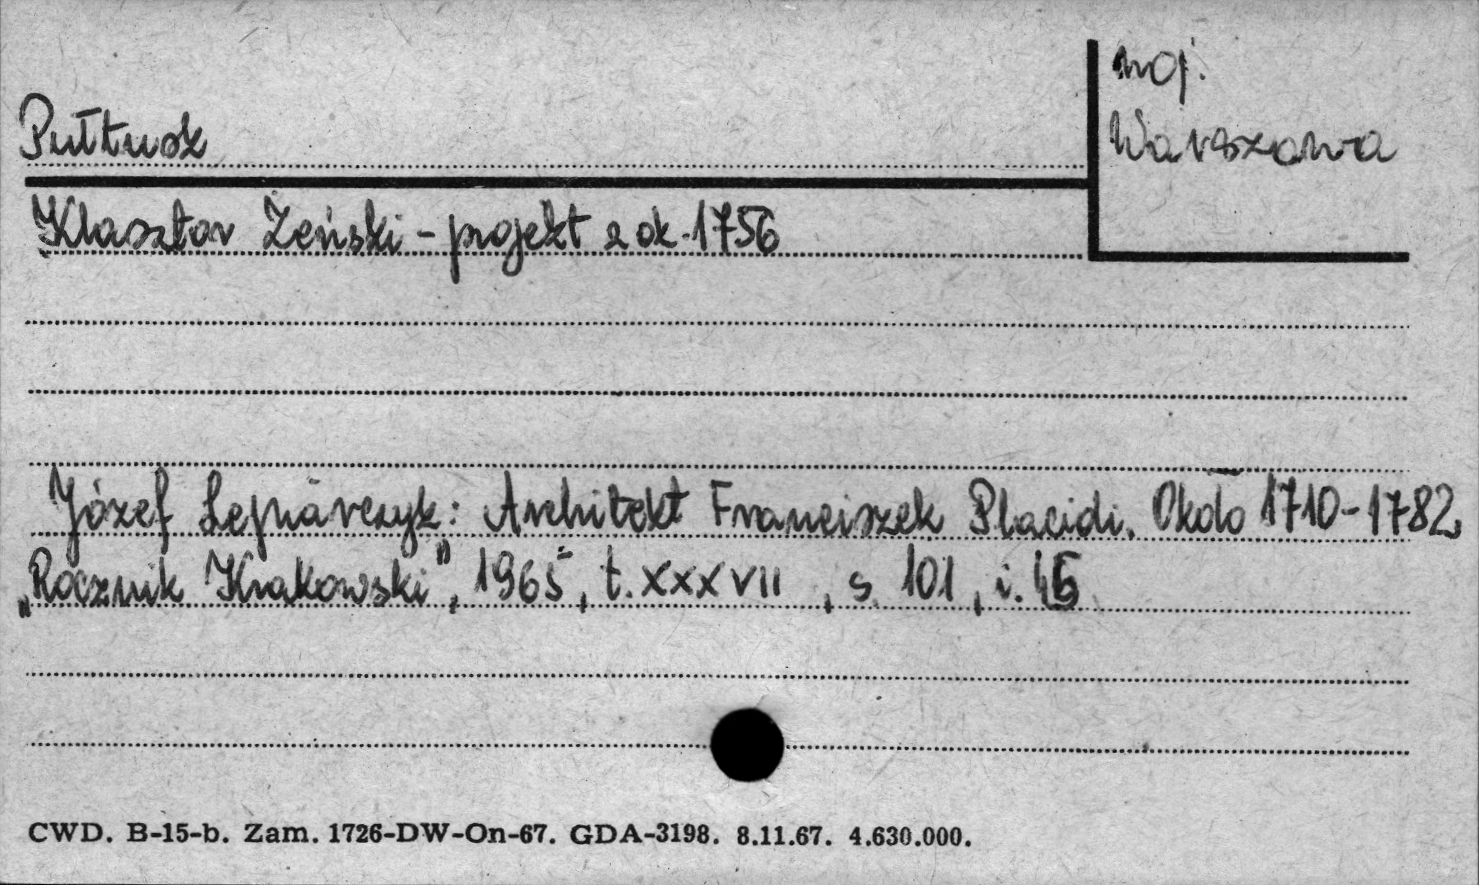 Pułtusk
woj.
Warszawa
Klasztor Żeński - projekt z ok. 1756
Józef Lepiarczyk: Architekt Franciszek Placidi. Około 1710-1782,
„Rocznik Krakowski”, 1965, t. XXXVII, s. 101, i.
CWD. B-15-b. Zam. 1726-DW-On-67. GDA-3198. 8.11.67. 4.630.000.